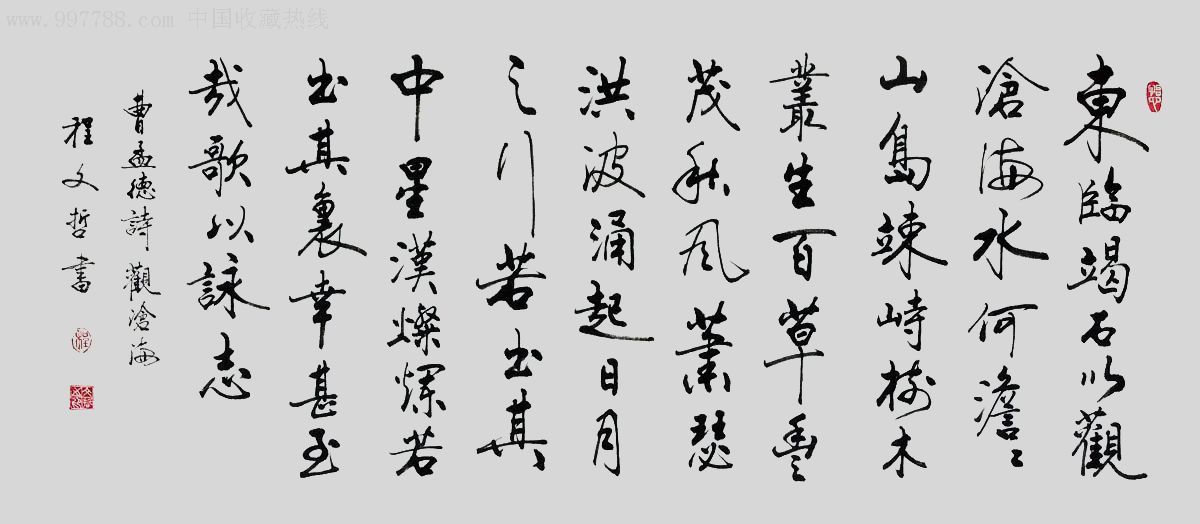 www.997788.com 中国收藏热线
東臨竭石以觀
滄海水何澹〻
山島竦峙樹木
叢生百草豐
茂秋風蕭瑟
洪波涌起日月
之行若出其
中星漢燦爛若
出其裏幸甚至
哉歌以詠志
曹孟德詩、觀滄海
程文哲書